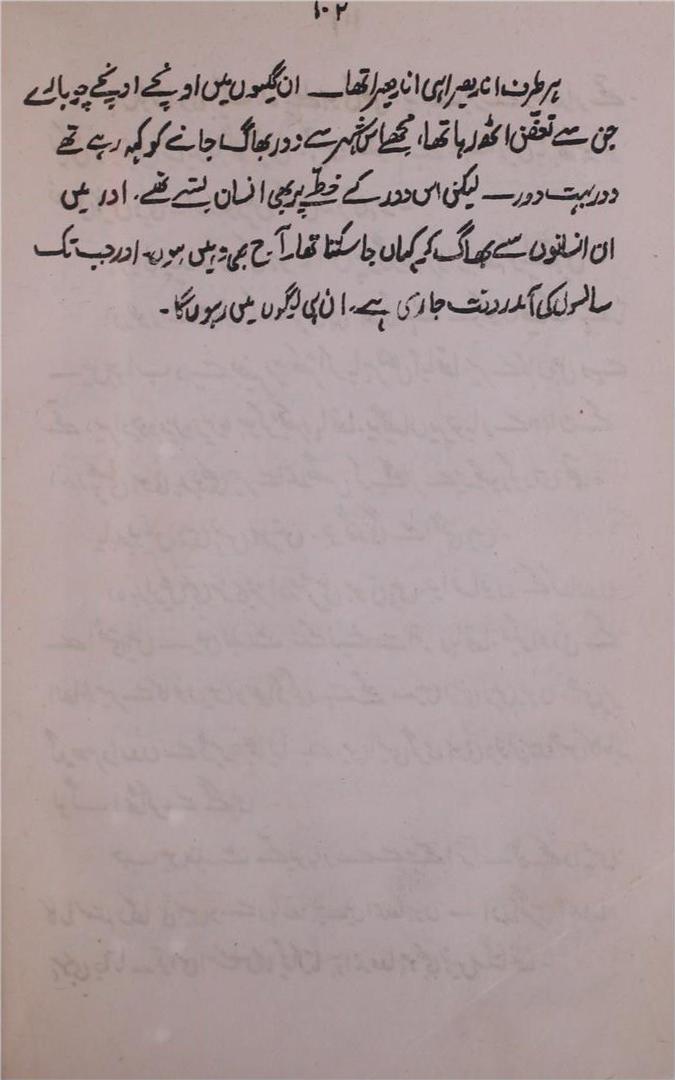 ۱۰۲
ہر طرف اندھیرا ہی اندھیرا تھا۔ ان گلیوں میں اونچے اونچے چوبارے
جن سے تعفّن اٹھ رہا تھا، مجھے اس شہر سے دور بھاگ جانے کو کہہ رہے تھے
دور بہت دور۔ لیکن اس دور کے خطّے پر بھی انسان بستے تھے۔ اور میں
ان انسانوں سے بھاگ کر کہاں جا سکتا تھا۔ آج بھی وہیں ہوں۔ اور جب تک
سانسوں کی آمد و رفت جاری ہے۔ ان ہی لوگوں میں رہوں گا۔